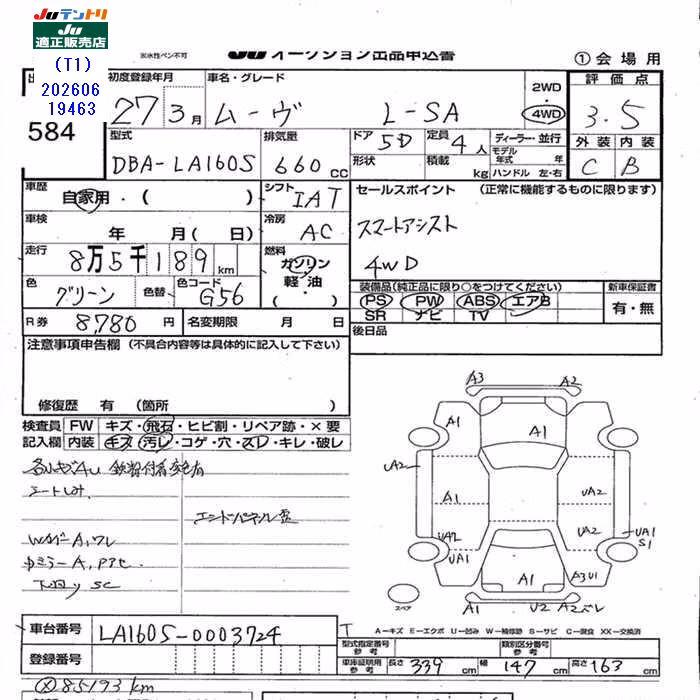 Juテントリ
Ju適正販売店
(T1)
202606
19463
584
※水性ペン不可
Ju オークション出品申込書
①会場用
初度登録年月
27 3月
車名・グレード
ムーヴ L-SA
2WD
・
4WD
評価点
3.5
型式
DBA-LA160S
排気量
660cc
ドア
5D
定員
4人
ディーラー・並行
モデル年式 年
形状
積載 kg
ハンドル 左・右
外装 内装
C B
車歴
自家用・( )
シフト
IAT
セールスポイント (正常に機能するものに限ります)
スマートアシスト
4WD
車検
年 月(日)
冷房
AC
走行
8万5千189km
燃料
ガソリン
軽油・
( )
色
グリーン
色替
色コード
G56
装備品(純正品に限り○をつけてください)
PS PW ABS エアB
SR ナビ TV
新車保証書
有・無
R券
8,780円
名変期限 月 日
後日品
注意事項申告欄 (不具合内容等は具体的に記入して下さい)
修復歴 有 (箇所 )
検査員記入欄
FW キズ・飛石・ヒビ割・リペア跡・×要
内装 キズ・汚レ・コゲ・穴・スレ・キレ・破レ
シートしみ
エンドパネル歪
下回りSC
A3 A2
A1
A1
UA2
A1
UA2
UA2
UA2
UA1
S1
UA1
A1
A3 U1
A1 U2 A2ズレ
スペア
A-キズ E-エクボ U-凹み W-補修跡 S-サビ C-腐食 XX-交換済
車台番号
LA160S-0003724
登録番号
型式指定番号 参考
類別区分番号 参考
車庫証明用 参考
長さ 339 幅 147 高さ 163
85193 km